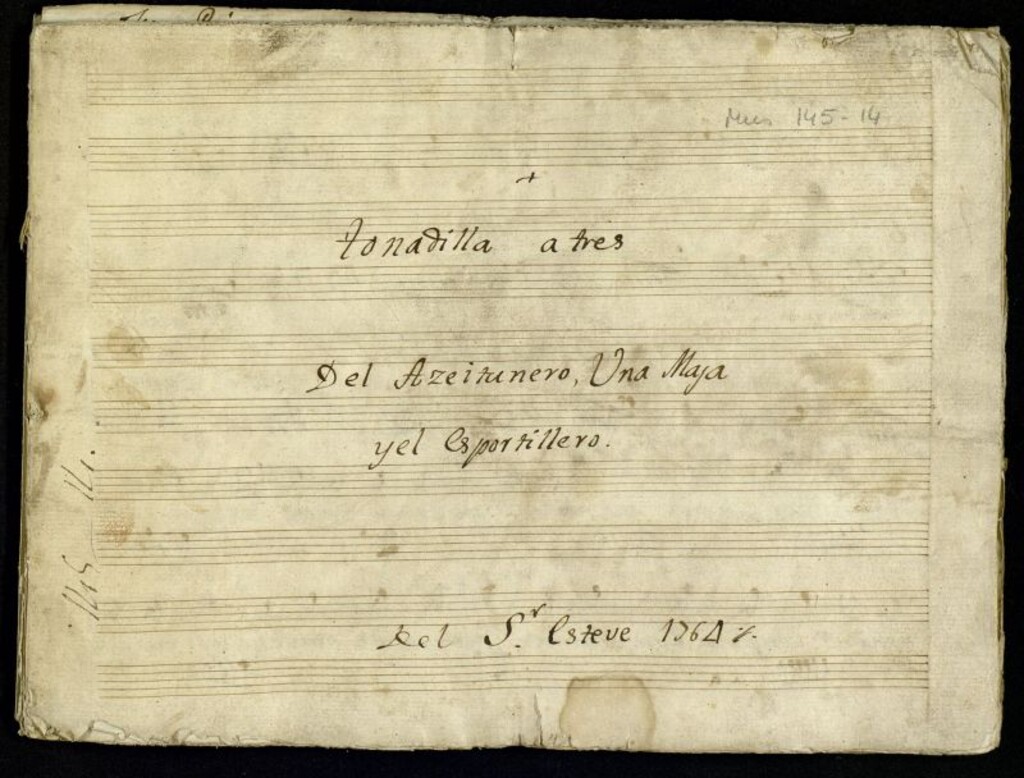 Mus 145-14
+
tonadilla a tres
Del Azeitunero, Una Maja
y el Esportillero.
Del S.r Esteve 1764
145 14.